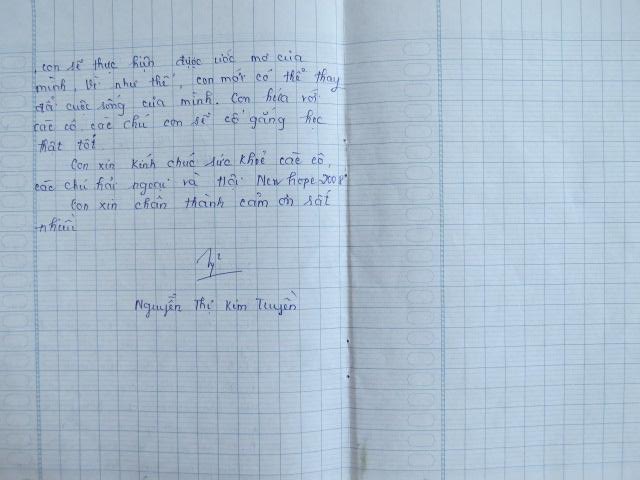 , con sẽ thực hiện được ước mơ của
mình, Vì như thế, con mới có thể thay
đổi cuộc sống của mình. Con hứa với
các cô, các chú con sẽ cố gắng học
thật tốt.
Con xin kính chúc sức khoẻ các cô,
các chú hải ngoại và Hội New hope 2008
Con xin chân thành cảm ơn rất
nhiều
Nguyễn Thị Kim Truyền